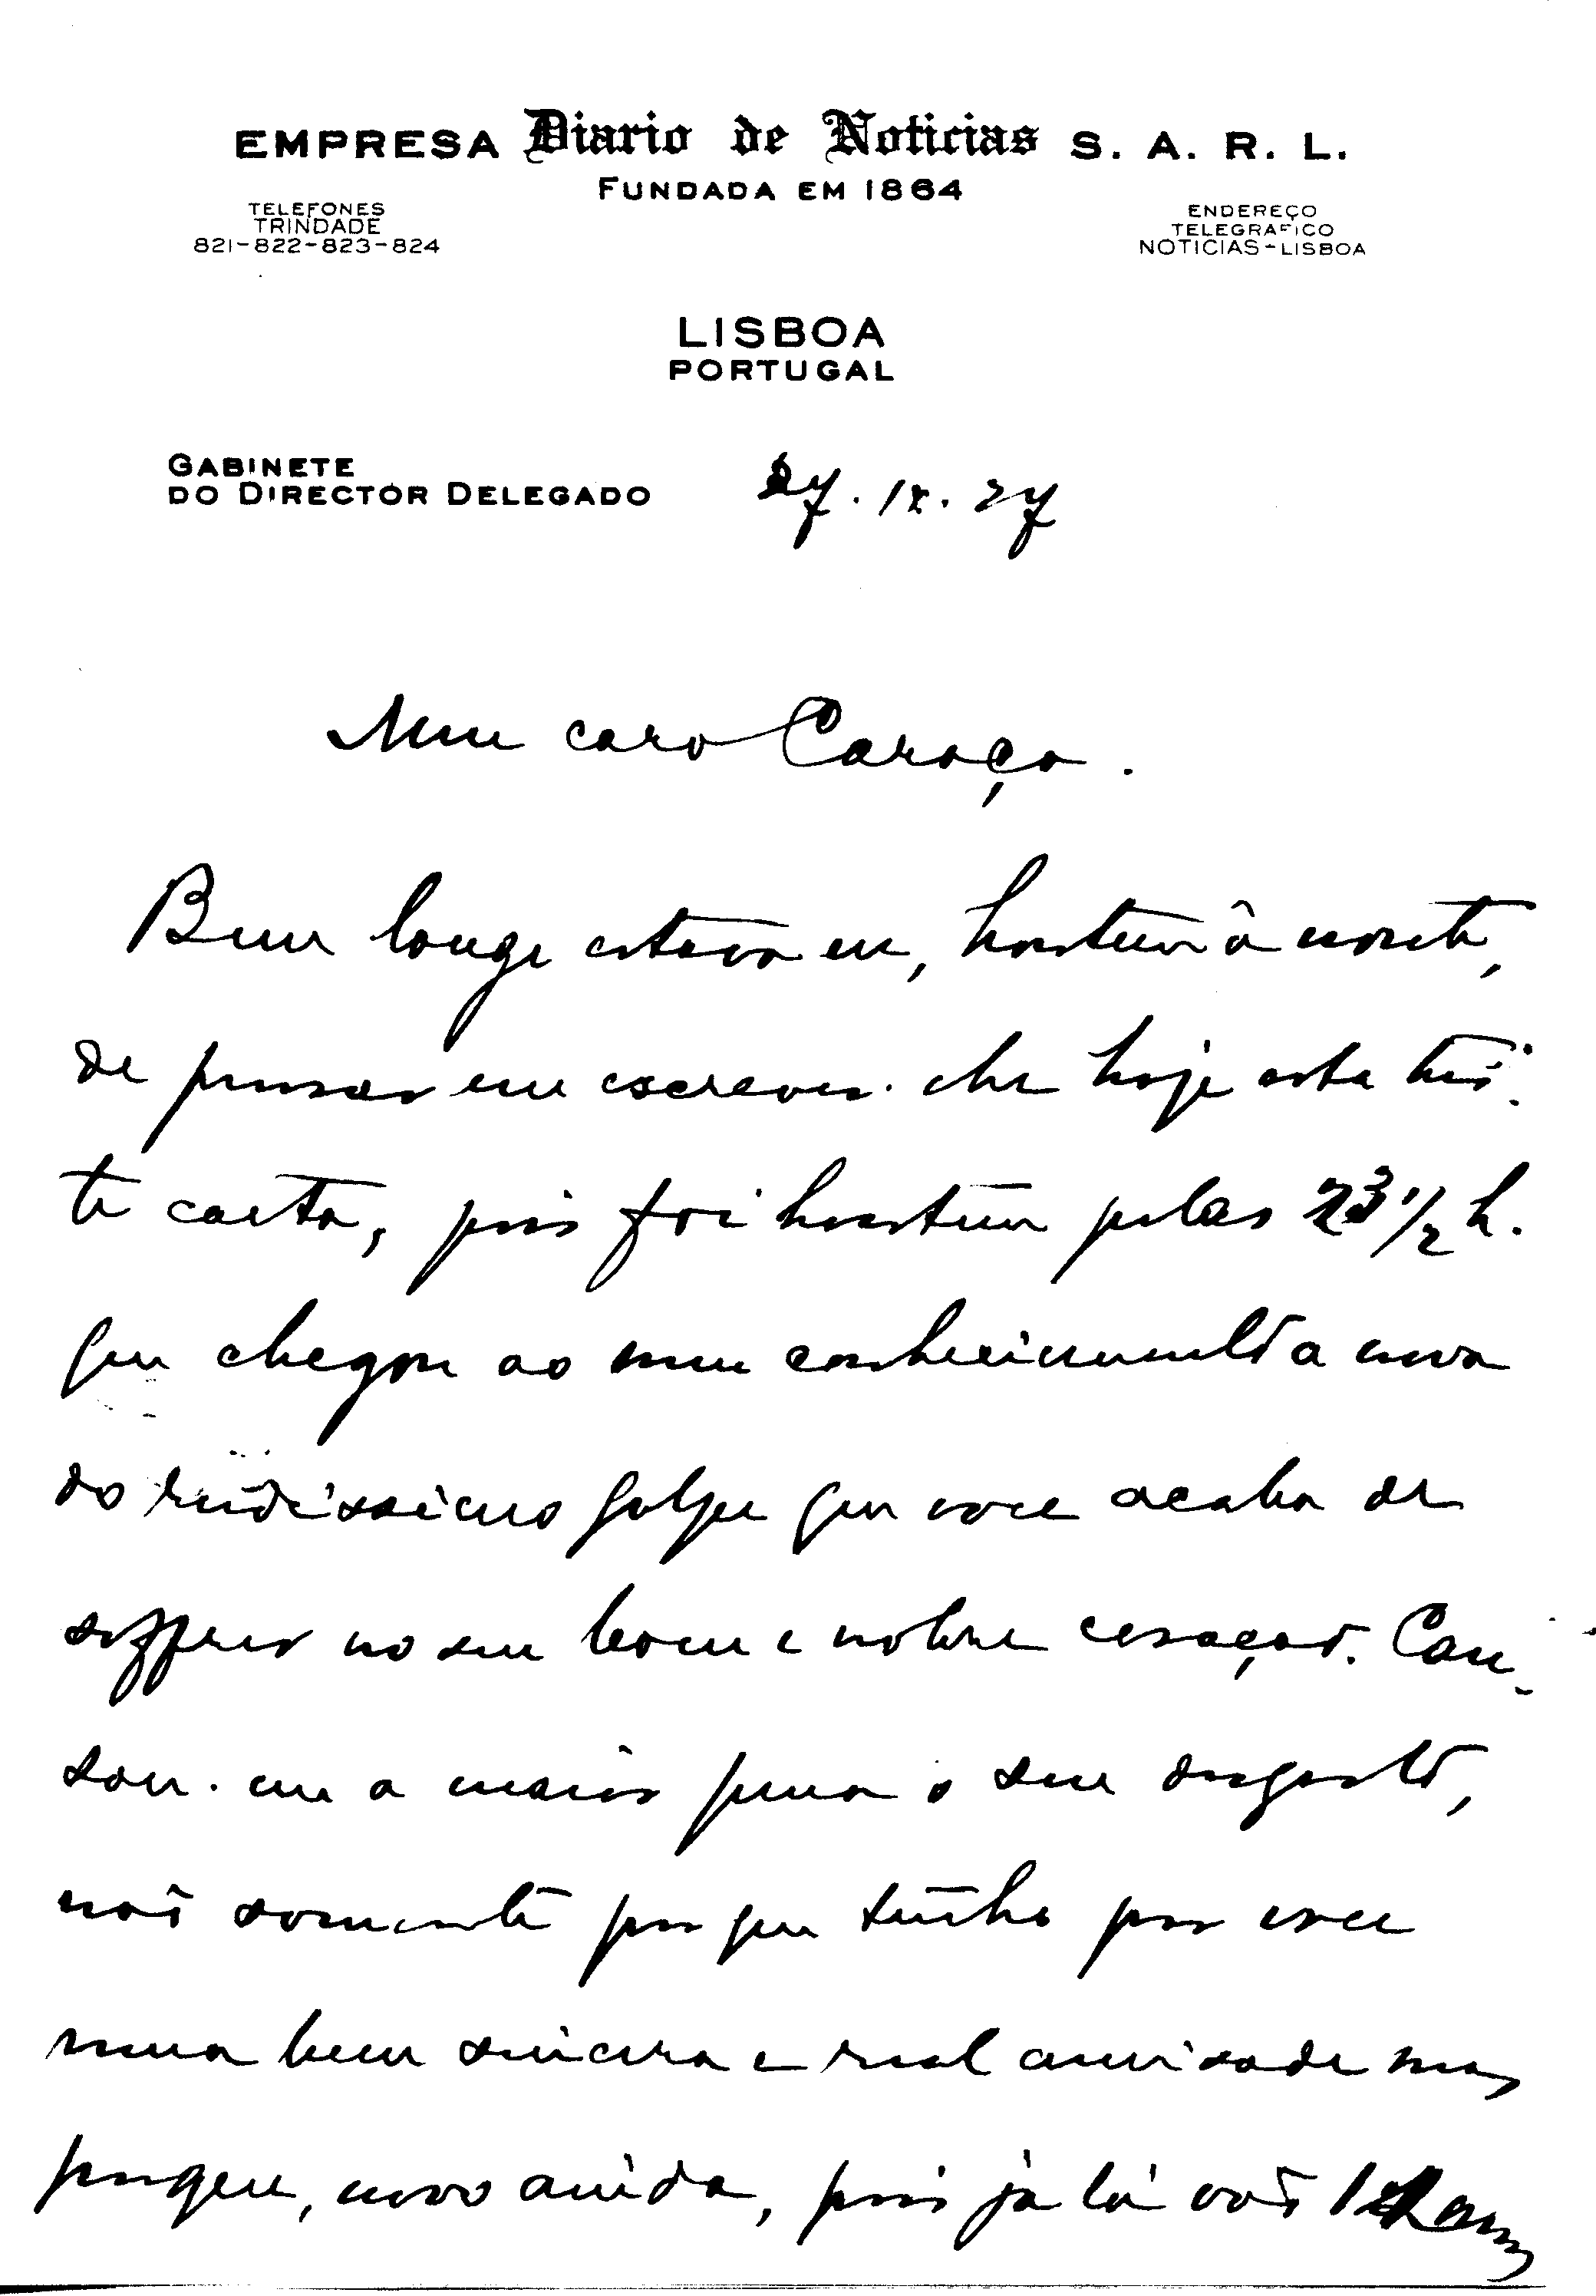 EMPRESA Diario de Noticias S. A. R. L.
FUNDADA EM 1864
TELEFONES
TRINDADE
821-822-823-824
ENDEREÇO
TELEGRAFICO
NOTICIAS-LISBOA
LISBOA
PORTUGAL
GABINETE
DO DIRECTOR DELEGADO
27. IX. 27
Meu caro Caroço.
Bem longe estava eu, hontem á noite,
de pensar em escrever-lhe hoje esta tris-
te carta, pois foi hontem pelas 23 1/2 h.
que chegou ao meu conhecimento a nova
do rudissimo golpe que voce acaba de
soffrer no seu bom e nobre coração. Cau-
sou-me a maior pena o seu desgosto,
não somente por que tenho por voce
uma bem sincera e real amisade mas
porque, novo ainda, pois já lá vão annos